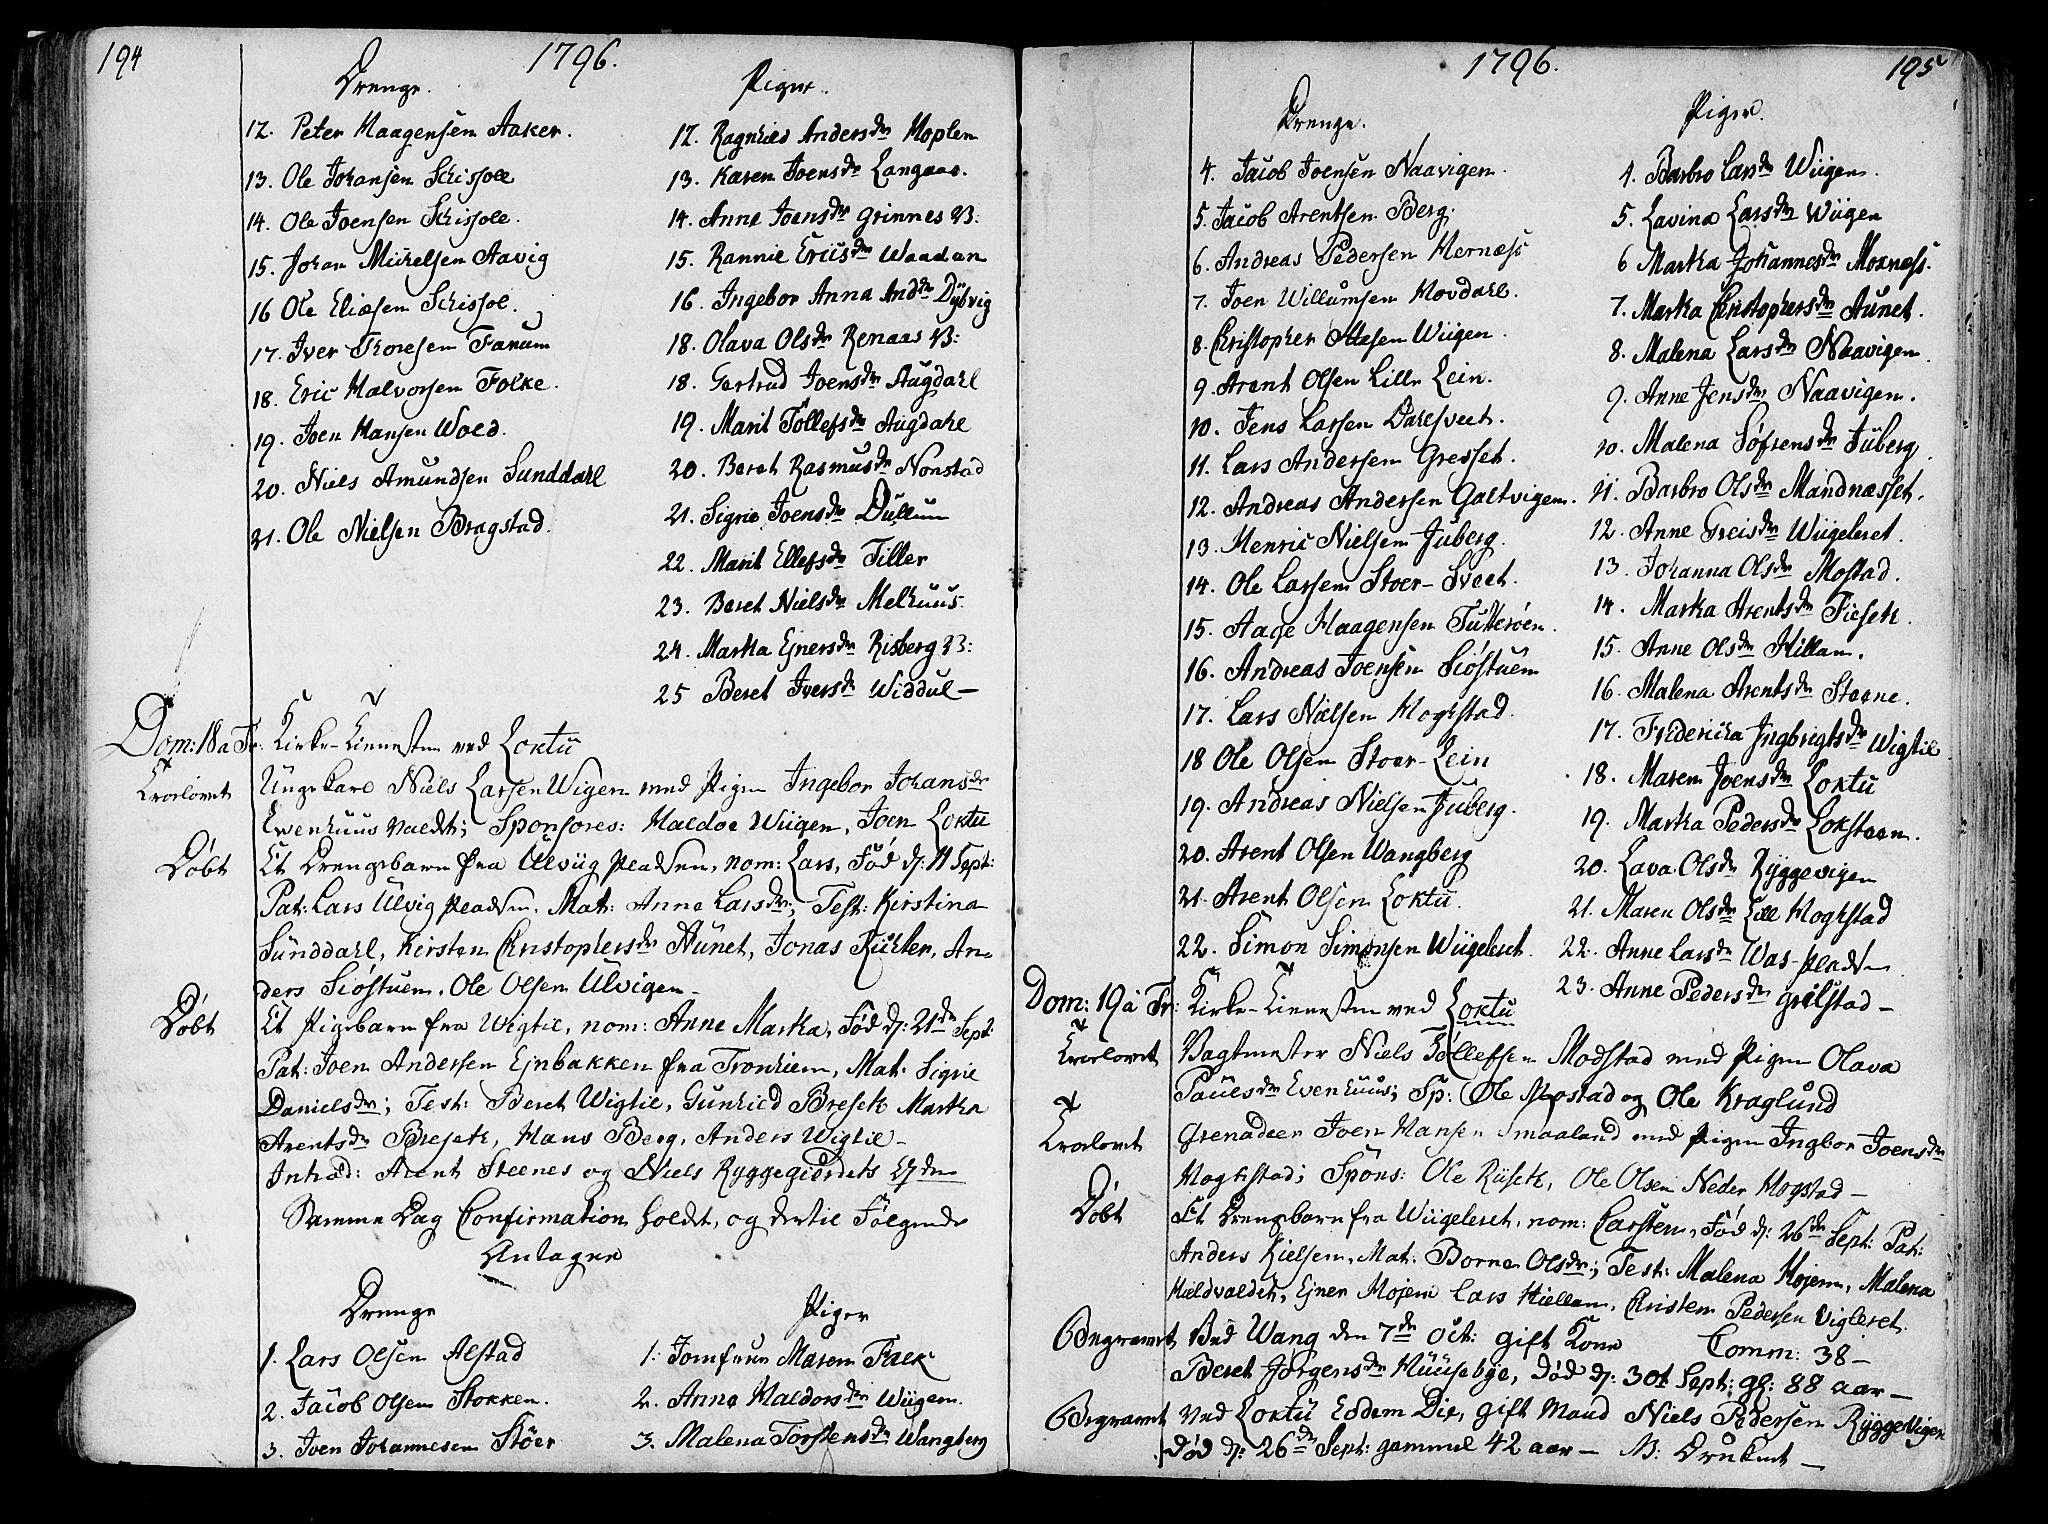 194
1796.
Drenge.
12. Peter Haagensen Aaker.
13. Ole Johansen Schissole
14. Ole Joensen Schissole.
15. Johan Michelsen Aavig
16 Ole Eliasen Schissol.
17. Iver Thoresen Fanum
18. Eric Halvorsen Folke.
19. Joen Hansen Wold.
20. Niels Amundsen Sunddahl
21. Ole Nielsen Bragstad.
Piger.
12. Ragnhild Andersdr Hoplen
13. Karen Joensdr Langaas.
14. Anne Joensdr Grinnes B:
15. Rannie Ericsdr Waadan
16. Ingebor Anna Anddr Dybvig
18. Olava Olsdr Renaas B:
18. Gertrud Joensdr Augdahl
19. Marit Tøllefsdr Augdahl
20. Beret Rasmusdr Nonstad
21. Sigrie Joensdr Dullum
22. Marit Ellefsdr Tiller
23. Beret Nielsdr Melhuus
24. Martha Ejnersdr Risberg B:
25 Beret Iversdr Widdul –
Dom: 18 a Tr. Kirke-Tienesten ved Loktu
Trolovet Ungekarl Niels Larsen Wigen med Pigen Ingebor Johansdr
Ewenhuus valdt; Sponsores: Haldoe Wiigen, Joen Loktu
Døbt Et Drengebarn fra Ulviig pladsen, nom: Lars, Fød d: 11 Sept:
Pat: Lars Ulvig pladsen. Mat: Anne Larsdr; Test: Kirstina
Sunddahl, Kirsten Christophersdr Aunet, Jonas Richter, An-
ders Siøstuen. Ole Olsen Ulvigen –
Døbt Et Pigebarn fra Wigtil, nom: Anne Martha, Fød d: 21de Sept:
Pat: Joen Andersen Ejnbakken fra Tronhiem, Mat. Sigrie
Danielsdr; Test: Beret Wigtil, Gunhild Bresek Martha
Arentsdr Bresek, Hans Berg, Anders Wigtil –
Introd: Arent Steenes og Niels Ryggegierdets
Samme Dag Confirmation holdt, og dertil Følgende
Antagne
Drenge
1. Lars Olsen Alstad
2. Jacob Olsen Stokken.
3. Joen Johannesen Støer
Piger
1: Jomfrue Maren Falk
2. Anne Haldorsdr Wiigen.
3. Malena Torstensdr Wangberg
1796.
195
Drenge.
4. Jacob Joensen Naavigen.
5. Jacob Arentsen Berg.
6. Andreas Pedersen Hernæss
7. Joen Willumsen Hovdahl.
8. Christopher Wiigen.
9. Arent Olsen Lille Lein.
10. Jens Larsen Dahlsveet.
11. Lars Andersen Gresset.
12. Andreas Andersen Galtvigen.
13. Henric Nielsen Juberg.
14. Ole Larsen Stoer-Sveet.
15. Aage Haagensen Tutterøen.
16. Andreas Joensen Siøstuen
17. Lars Nielsen Hoghstad.
18 Ole Olsen Stoer-Lein
19. Andreas Nielsen Juberg.
20. Arent Olsen Wangberg
21. Arent Olsen Loktu.
22. Simon Simonsen Wiigeleret.
Piger.
4. Barbro Larsdr Wiigen.
5. Lavina Larsdr Wiigen
6 Martha Johannesdr Moxness.
7. Martha Christophersdr Aunet.
8. Malena Larsdr Naavigen
9. Anne Jensdr Naavigen.
10. Malena Søfrensdr Juberg.
11. Barbro Olsdr Mandnæsset.
12. Anne Greisdr Wiigeleret.
13. Johanna Olsdr Mostad.
14. Martha Arentsdr Fiesek.
15. Anne Olsdr Hillam.
16. Malena Arentsdr Steene.
17. Fridericha Ingbrigtsdr Wigtil
18. Maren Joensdr Loktu
19. Martha Pedersdr Loksteen.
20. Lava Olsdr Ryggevigen
21. Maren Olsdr Lill Hoghstad
22. Anne Larsdr Was-pladsen
23. Anne Pedersdr Grilstad –
Dom: 19 à Tr: Kirke-Tienesten ved Loktu
Trolovet Vagtmester Niels Tøllefsen Modstad med Pigen Olava
Paulsdr Evenhuus; Sp: Ole Mostad og Ole Kraglund
Trolovet Grenadeer Joen Hansen Smaaland med Pigen Ingbor Joensdr
Hoghstad; Spons: Ole Rusek, Ole Olsen Neder Hogstad –
Døbt Et Drengebarn fra Wiigeleret, nom: Carsten, Fød d: 26de Sept: Pat:
Anders Kielsen, Mat: Borne Olsdr; Test: Malena Hojem, Malena
Hieldvaldet, Ejner Hojem Lars Hiellam, Christen Pedersen Vigleret.
Begravet Ved Wang den 7de Oct: gift Kone Comm: 38 –
Beret Jørgensdr Huusebye, Død d: 30t Sept: gl: 88 aar –
Begravet ved Loktu Eodem Die, gift Mand Niels Pedersen Ryggevigen
Død d: 26de Sept: gammel 42 aar – NB: Druknet –